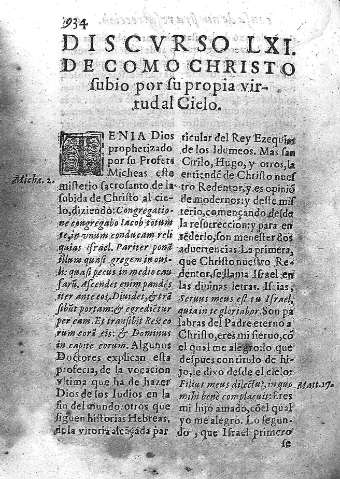 934
DISCVRSO LXI.
DE COMO CHRISTO
subio por su propia vir-
tud al Cielo.
TENIA Dios
prophetizado
por su Profeta
Micheas este
misterio sacrosanto, de la
subida de Christo al cie-
lo, diziendo: Congregatio-
ne congregabo Iacob totum
te, in vnum conducam reli
quias Israel. Pariter ponā
illum quasi gregem in oui-
li: quasi pecus in medio cau-
larū, ascendet enim pandēs
iter ante eos. Diuidēt, & trā
sibūt portam: & egredietur
per eam. Et transibit Rex eo
rum corā eis: & Dominus
in capite eorum. Algunos
Doctores explican esta
profecia, de la vocacion
vltima que ha de hazer
Dios de los Iudios en la
fin del mundo: otros que
siguen historias Hebreas,
de la vitoria alcāçada par
Miche. 2.
ticular del Rey Ezequias
de los Idumeos. Mas san
Cirilo, Hugo, y otros, la
entiendē de Christo nues
tro Redentor, y es opiniō
de modernos: y deste mis
terio, començando desde
la resurreccion: y para en-
tēderlo, son menester dos
aduertencias. La primera,
que Christo nuestro Re-
dentor, se llama Israel en
las diuinas letras. Isaias,
Seruus meus es tu Israel,
quia in te gloriabor. Son pa
labras del Padre eterno a
Christo, eres mi sieruo, cō
el qual me alegro: lo que
despues con titulo de hi-
jo, le dixo desde el cielo:
Filius meus dilectus, in quo
mihi bene complacui: Eres
mi hijo amado, cō el qual
yo me alegro. Lo segun-
do, que Israel primero
se
Matt. 17.